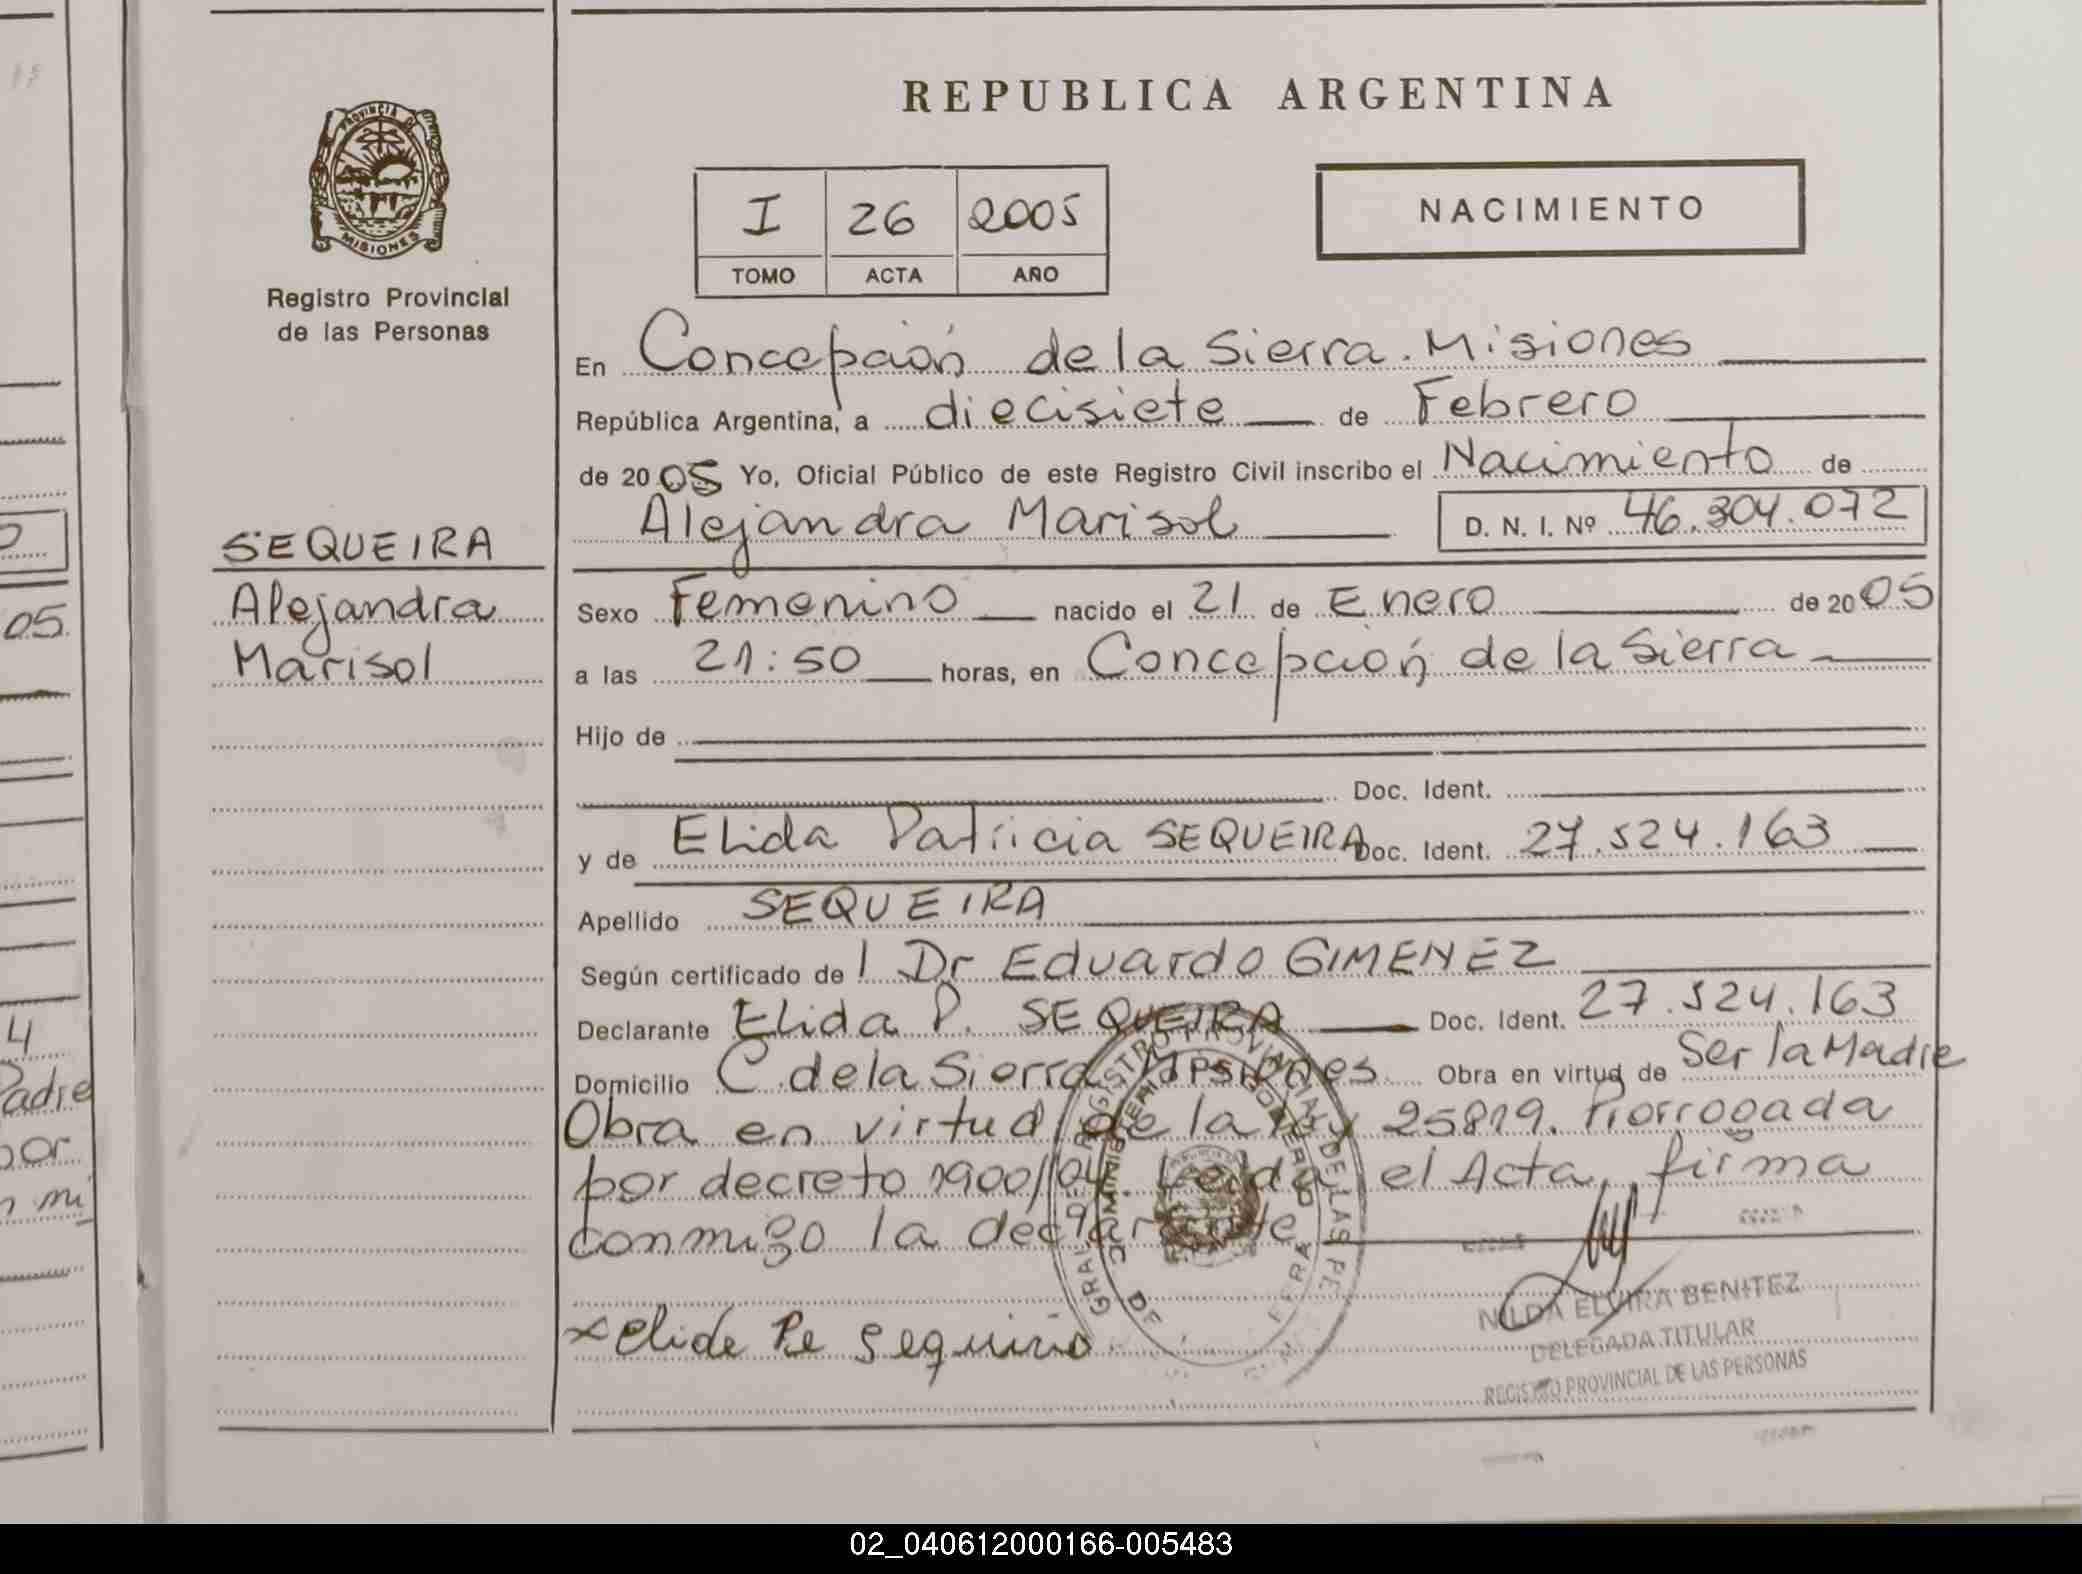 REPUBLICA ARGENTINA
PROVINCIA DE
MISIONES
Registro Provincial
de las Personas
I 26 2005
TOMO ACTA AÑO
NACIMIENTO
En Concepción de la Sierra. Misiones
República Argentina, a diecisiete de Febrero
de 2005 Yo, Oficial Público de este Registro Civil inscribo el Nacimiento de
Alejandra Marisol D. N. I. Nº 46.304.072
SEQUEIRA
Alejandra
Marisol
Sexo Femenino nacido el 21 de Enero de 2005
a las 21:50 horas, en Concepción de la Sierra
Hijo de
Doc. Ident.
y de Elida Patricia SEQUEIRA Doc. Ident. 27.524.163
Apellido SEQUEIRA
Según certificado de l Dr Eduardo GIMENEZ
Declarante Elida P. SEQUEIRA Doc. Ident. 27.524.163
Domicilio C. de la Sierra Misiones Obra en virtud de Ser la Madre
Obra en virtud de la ley 25819. Prorrogada
por decreto 1900/04. Leida el Acta, firma
conmigo la declarante
x Elide Pe sequiria
NILDA ELVIRA BENITEZ
DELEGADA TITULAR
REGISTRO PROVINCIAL DE LAS PERSONAS
05
4
Padre
por
n mi
02_040612000166-005483